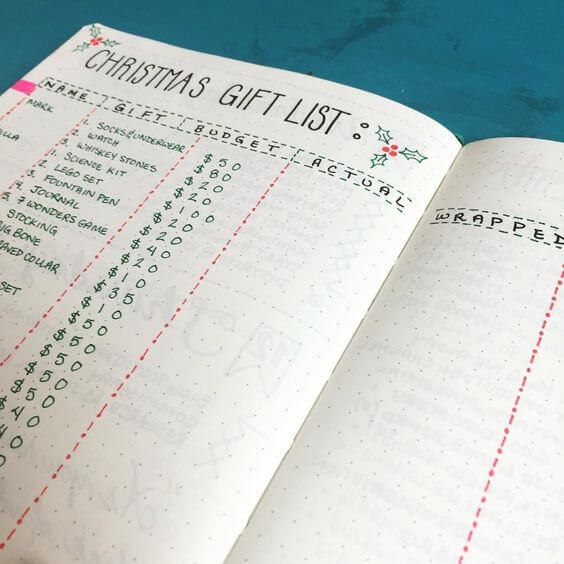 CHRISTMAS GIFT LIST:
NAME GIFT BUDGET ACTUAL WRAPPED
MARK SOCKS & UNDERWEAR $50
2. WATCH $80
3. WHISKEY STONES $20
1. SCIENCE KIT $20
2. LEGO SET $100
3. FOUNTAIN PEN $20
4. JOURNAL $40
5. 7 WONDERS GAME $20
STOCKING $10
BONE $35
COLLAR $10
$50
SET $50
$50
$50
$40
$40